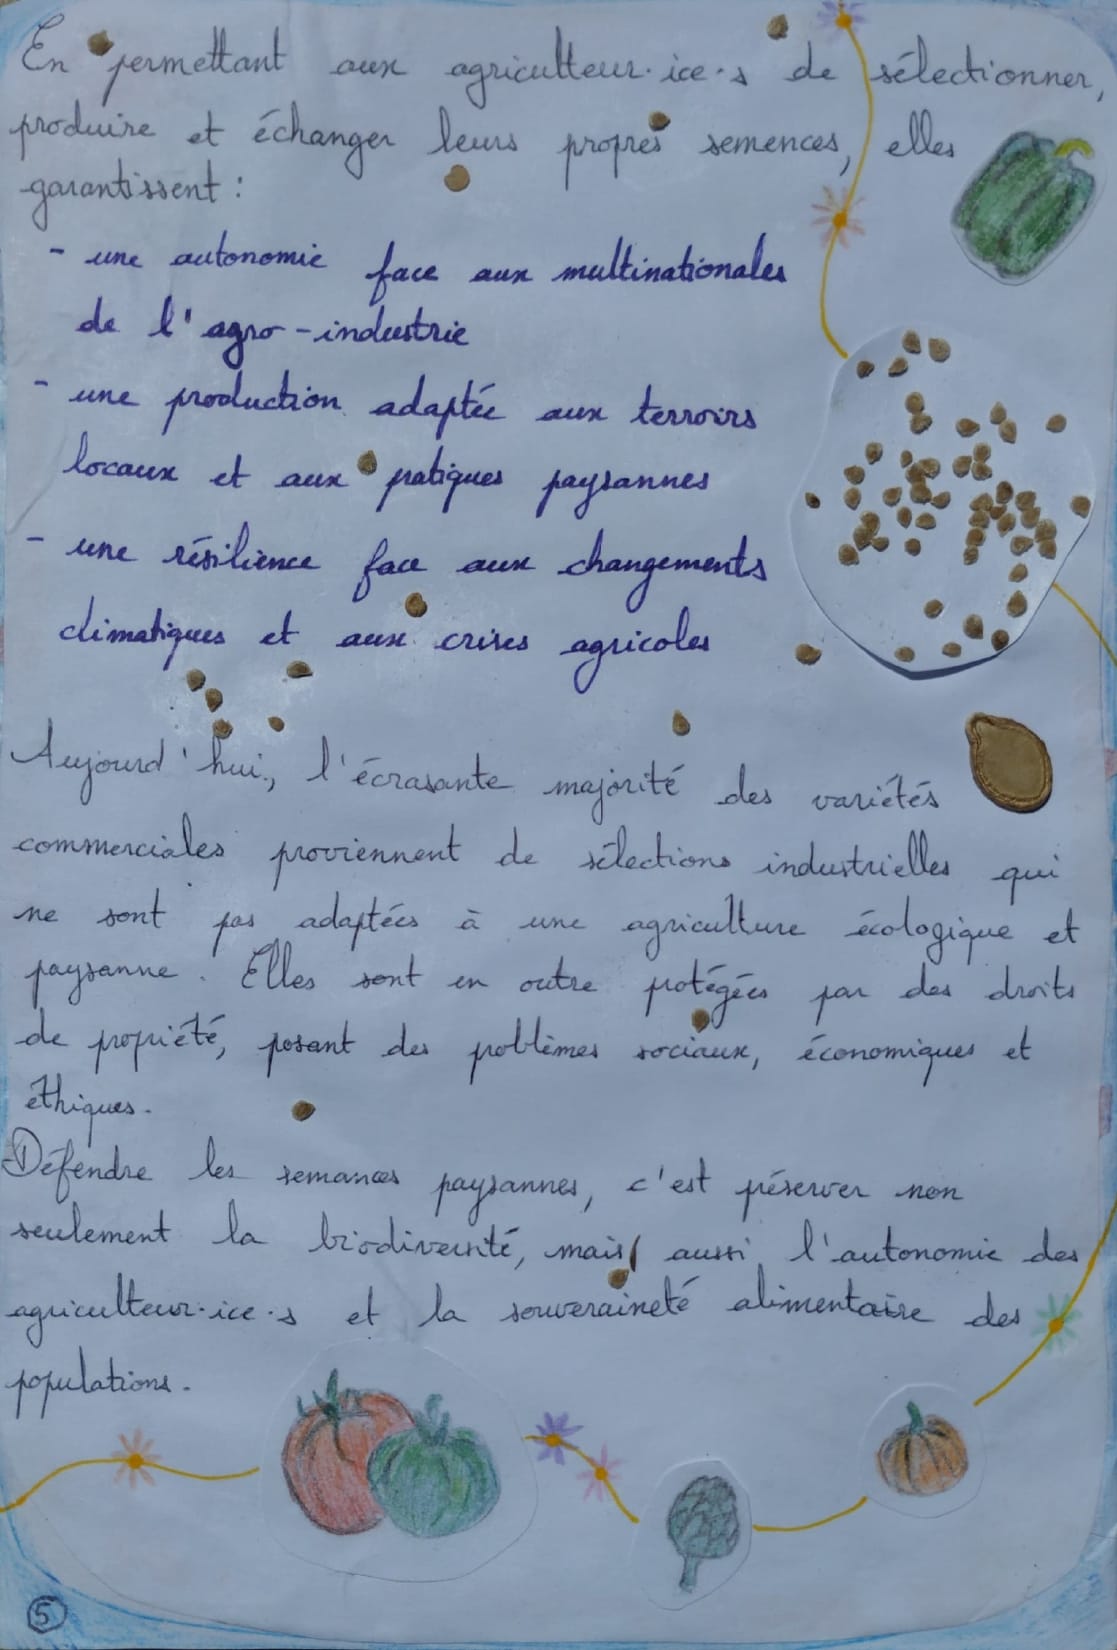 En permettant aux agriculteur·ice·s de sélectionner,
produire et échanger leurs propres semences, elles
garantissent :
- une autonomie face aux multinationales
de l'agro-industrie
- une production adaptée aux terroirs
locaux et aux pratiques paysannes
- une résilience face aux changements
climatiques et aux crises agricoles
Aujourd'hui, l'écrasante majorité des variétés
commerciales proviennent de sélections industrielles qui
ne sont pas adaptées à une agriculture écologique et
paysanne. Elles sont en outre protégées par des droits
de propriété, posant des problèmes sociaux, économiques et
éthiques.
Défendre les semances paysannes, c'est préserver non
seulement la biodiversité, mais aussi l'autonomie des
agriculteur·ice·s et la souveraineté alimentaire des
populations.
5